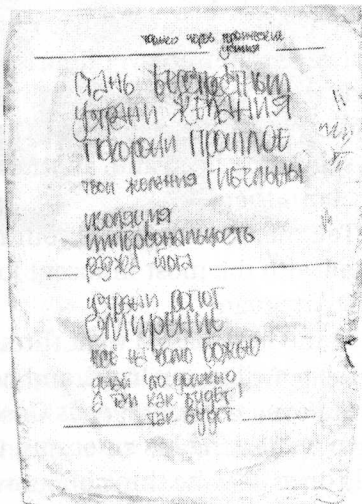 только через
усилия
стань
устрани желания
похорони прошлое
твои желания гибельны
изоляция
имперсональность
раджа йога
устрани
смирение
всё на волю божью
делай что должно
а там как будет!
так будет